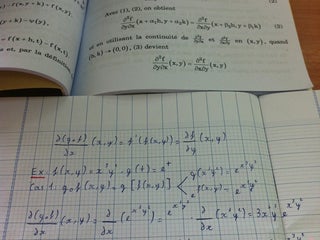 y + k) − φ(y).
) − f(x + h, t) − f(x, t)
et, par la définitio
Avec (1), (2), on obtient
∂²f/∂y∂x (x + α₁h, y + α₂k) = ∂²f/∂x∂y (x + β₂h, y + β₁k) (3)
et en utilisant la continuité de ∂²f/∂y∂x et ∂²f/∂x∂y en (x, y), quand
(h, k) → (0, 0), (3) devient
∂²f/∂y∂x (x, y) = ∂²f/∂x∂y (x, y)
∂(g∘f)/∂x (x,y) = g'(f(x,y)) = ∂f/∂y (x,y)
Ex: f(x,y) = x³y² . g(t) = e^t
Cas 1: g∘f(x,y) = g[f(x,y)] g(x³y²) = e^{x³y²}
e^{f(x,y)} = e^{x³y²}
∂(g∘f)/∂x (x,y) = ∂/∂x (e^{x³y²}) = e^{x³y²} · ∂/∂x (x³y²) = 3x²y² e^{x³y²}